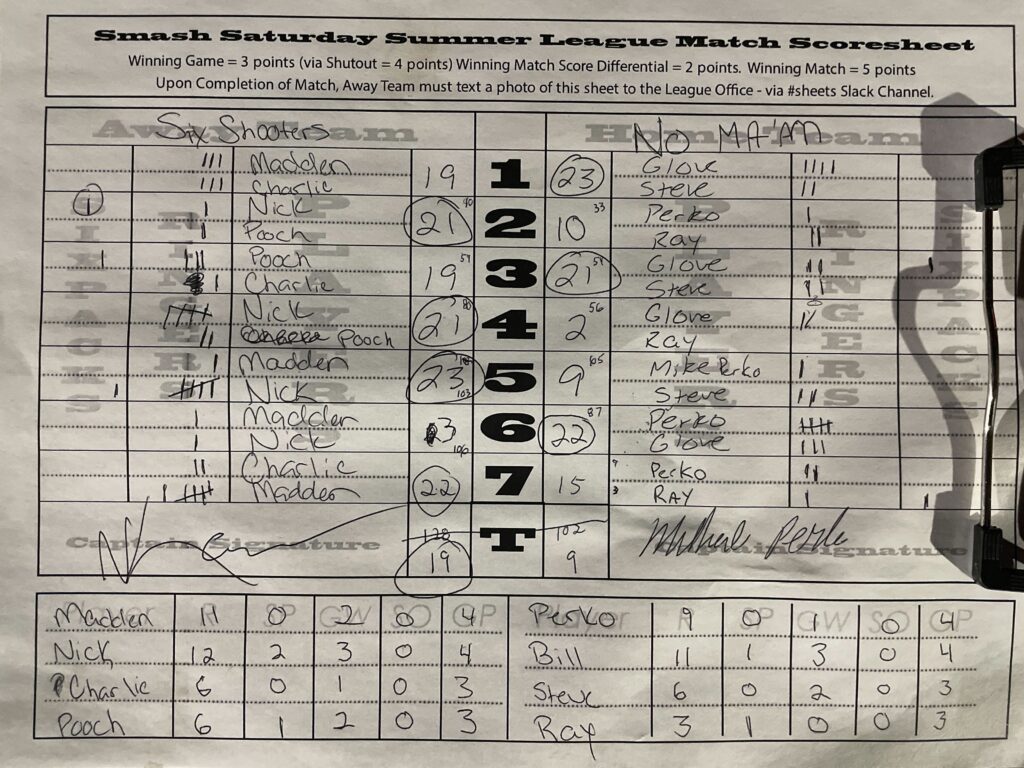 Smash Saturday Summer League Match Scoresheet
Winning Game = 3 points (via Shutout = 4 points) Winning Match Score Differential = 2 points. Winning Match = 5 points
Upon Completion of Match, Away Team must text a photo of this sheet to the League Office - via #sheets Slack Channel.
Away Team Home Team
Six Shooters NO MA'AM
Madden 19 1 23 Glove
Charlie Steve
1 Nick 21 40 2 10 33 Perko
Pooch Ray
Pooch 19 59 3 21 54 Glove
Charlie Steve
Nick 21 80 4 2 56 Glove
Pooch Ray
Madden 23 5 9 65 Mike Perko
Nick 103 Steve
Madden 3 6 22 87 Perko
Nick 106 Glove
Charlie 22 7 15 Perko
Madden RAY
SIXPACKS RINGERS PLAYER PLAYER RINGERS SIXPACKS
128 T 102
19 9
Captain Signature Captain Signature
Player R SP GW SO GP Player R SP GW SO GP
Madden 11 0 2 0 4 Perko 9 0 1 0 4
Nick 12 2 3 0 4 Bill 11 1 3 0 4
Charlie 6 0 1 0 3 Steve 6 0 2 0 3
Pooch 6 1 2 0 3 Ray 3 1 0 0 3